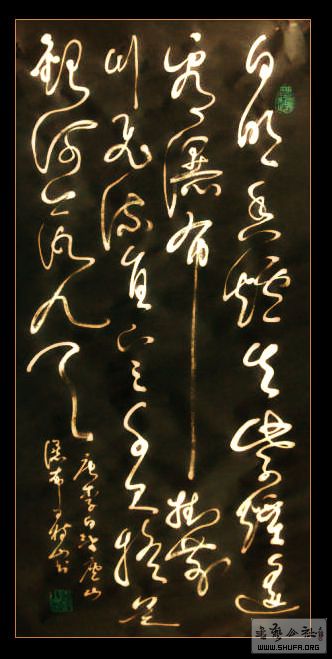 日照香爐生紫煙遥
看瀑布挂前
川飛流直下三千尺疑是
銀河落九天
唐李白望廬山
瀑布
书艺公社
WWW.SHUFA.ORG